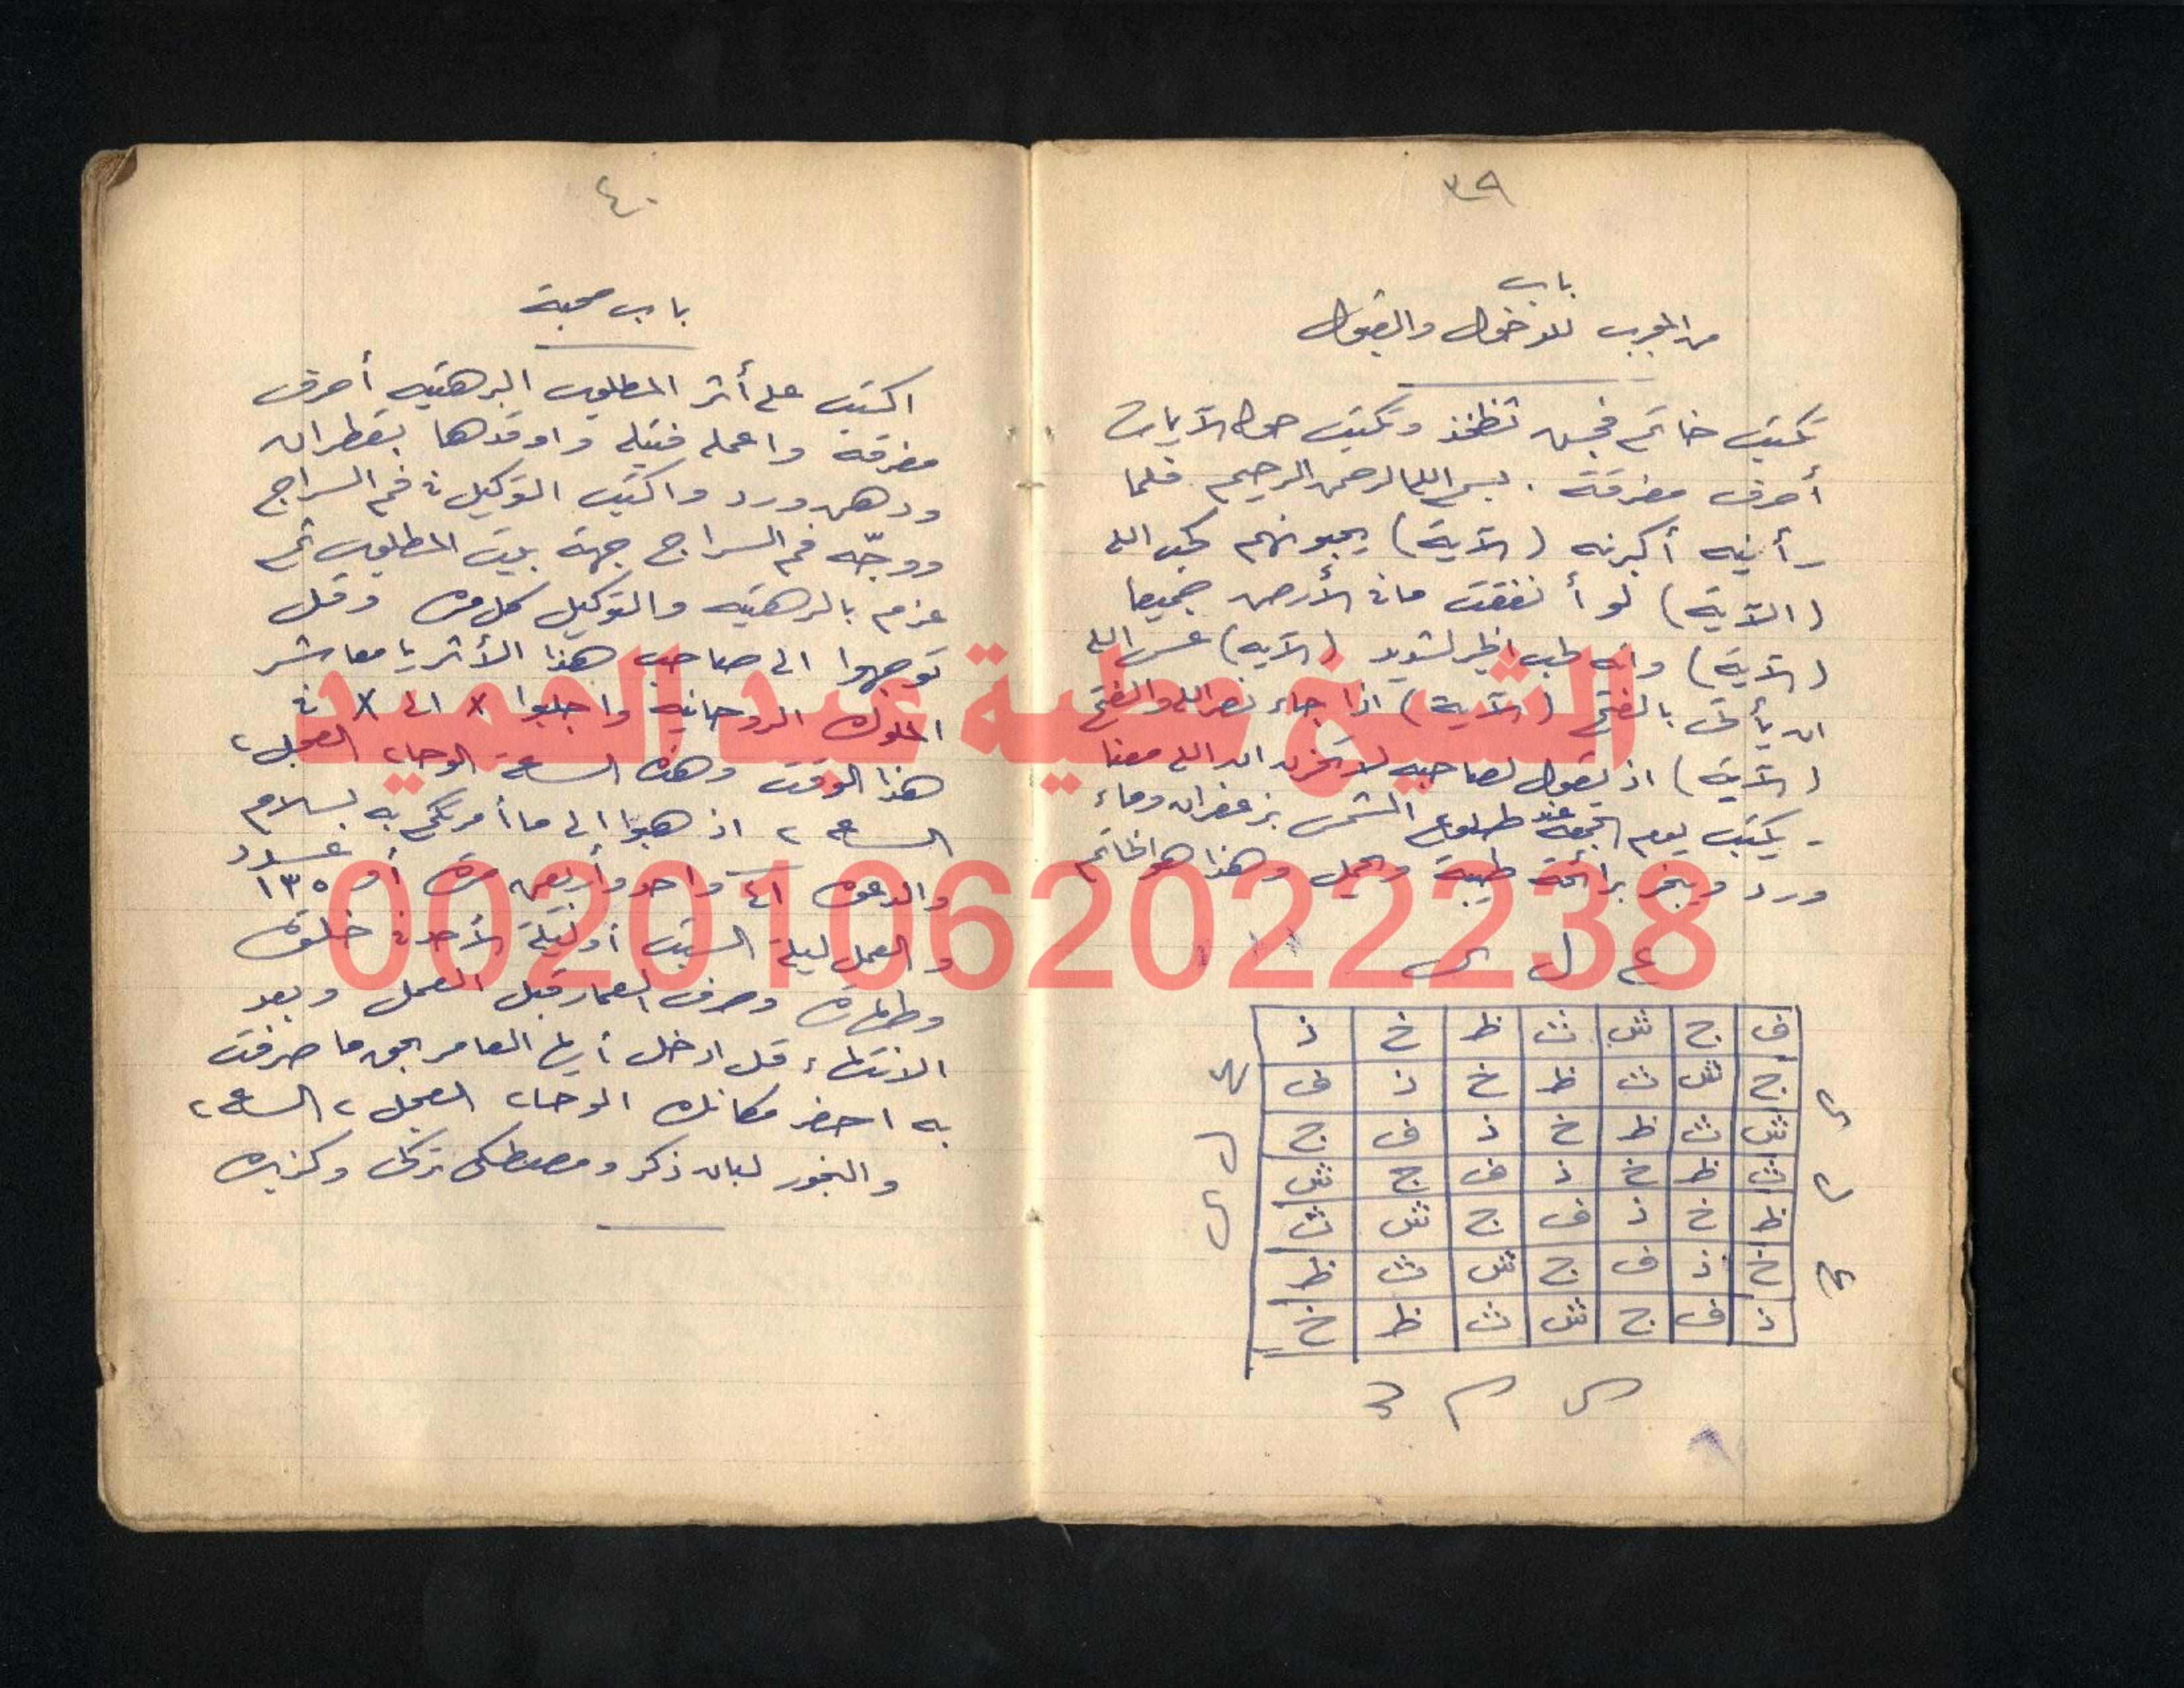 ٣٩
باب
من المجرب للدخول والقبول
تكتب خاتم فجش ثظخذ وتكتب حوله الآيات
أحرف مفرقة . بسم الله الرحمن الرحيم فلما
رأينه أكبرنه (الآية) يحبونهم كحب الله
(الآية) لو أنفقت ما في الأرض جميعا
(الآية) وإنه لحب الخير لشديد (الآية) عسى الله
ان يأتى بالفتح (الآية) اذا جاء نصر الله والفتح
(الآية) اذ يقول لصاحبه لا تحزن ان الله معنا
- يكتب يوم الجمعة عند طلوع الشمس بزعفران وماء
ورد ويبخر برائحة طيبة ويحمل وهذا هو الخاتم
ف ج ش ث ظ خ ذ
ج ش ث ظ خ ذ ف
ش ث ظ خ ذ ف ج
ث ظ خ ذ ف ج ش
ظ خ ذ ف ج ش ث
خ ذ ف ج ش ث ظ
ذ ف ج ش ث ظ خ
٤٠
باب محبة
اكتب على أثر المطلوب البرهتيه أحرف
مفرقة واعمله فتيله واوقدها بقطران
ودهن ورد واكتب التوكيل في فم السراج
ووجّه فم السراج جهة بيت المطلوب ثم
عزم بالبرهتيه والتوكيل كل مره وقل
توجهوا الى صاحب هذا الأثر يا معاشر
الملوك الروحانيه واجلبوا x الى x في
هذا الوقت وهذه الساعة الوحا٢ العجل٢
الساعه ٢ اذهبوا الى ما أمرتكم به بسلام
والدعوه ٤١ واحد وأربعين مرة أو عدد ١٣٥
والعمل ليلة السبت أو ليلة الأحد في خلوة
وطهارة وصرف العمار قبل العمل وبعد
الانتهاء قل ادخل أيها العامر بحق ما صرفت
به احضر مكانك الوحا٢ العجل٢ الساعه٢
والبخور لبان ذكر ومصطكى تركى وكزبره
الشيخ عطية عبد الحميد
00201062022238